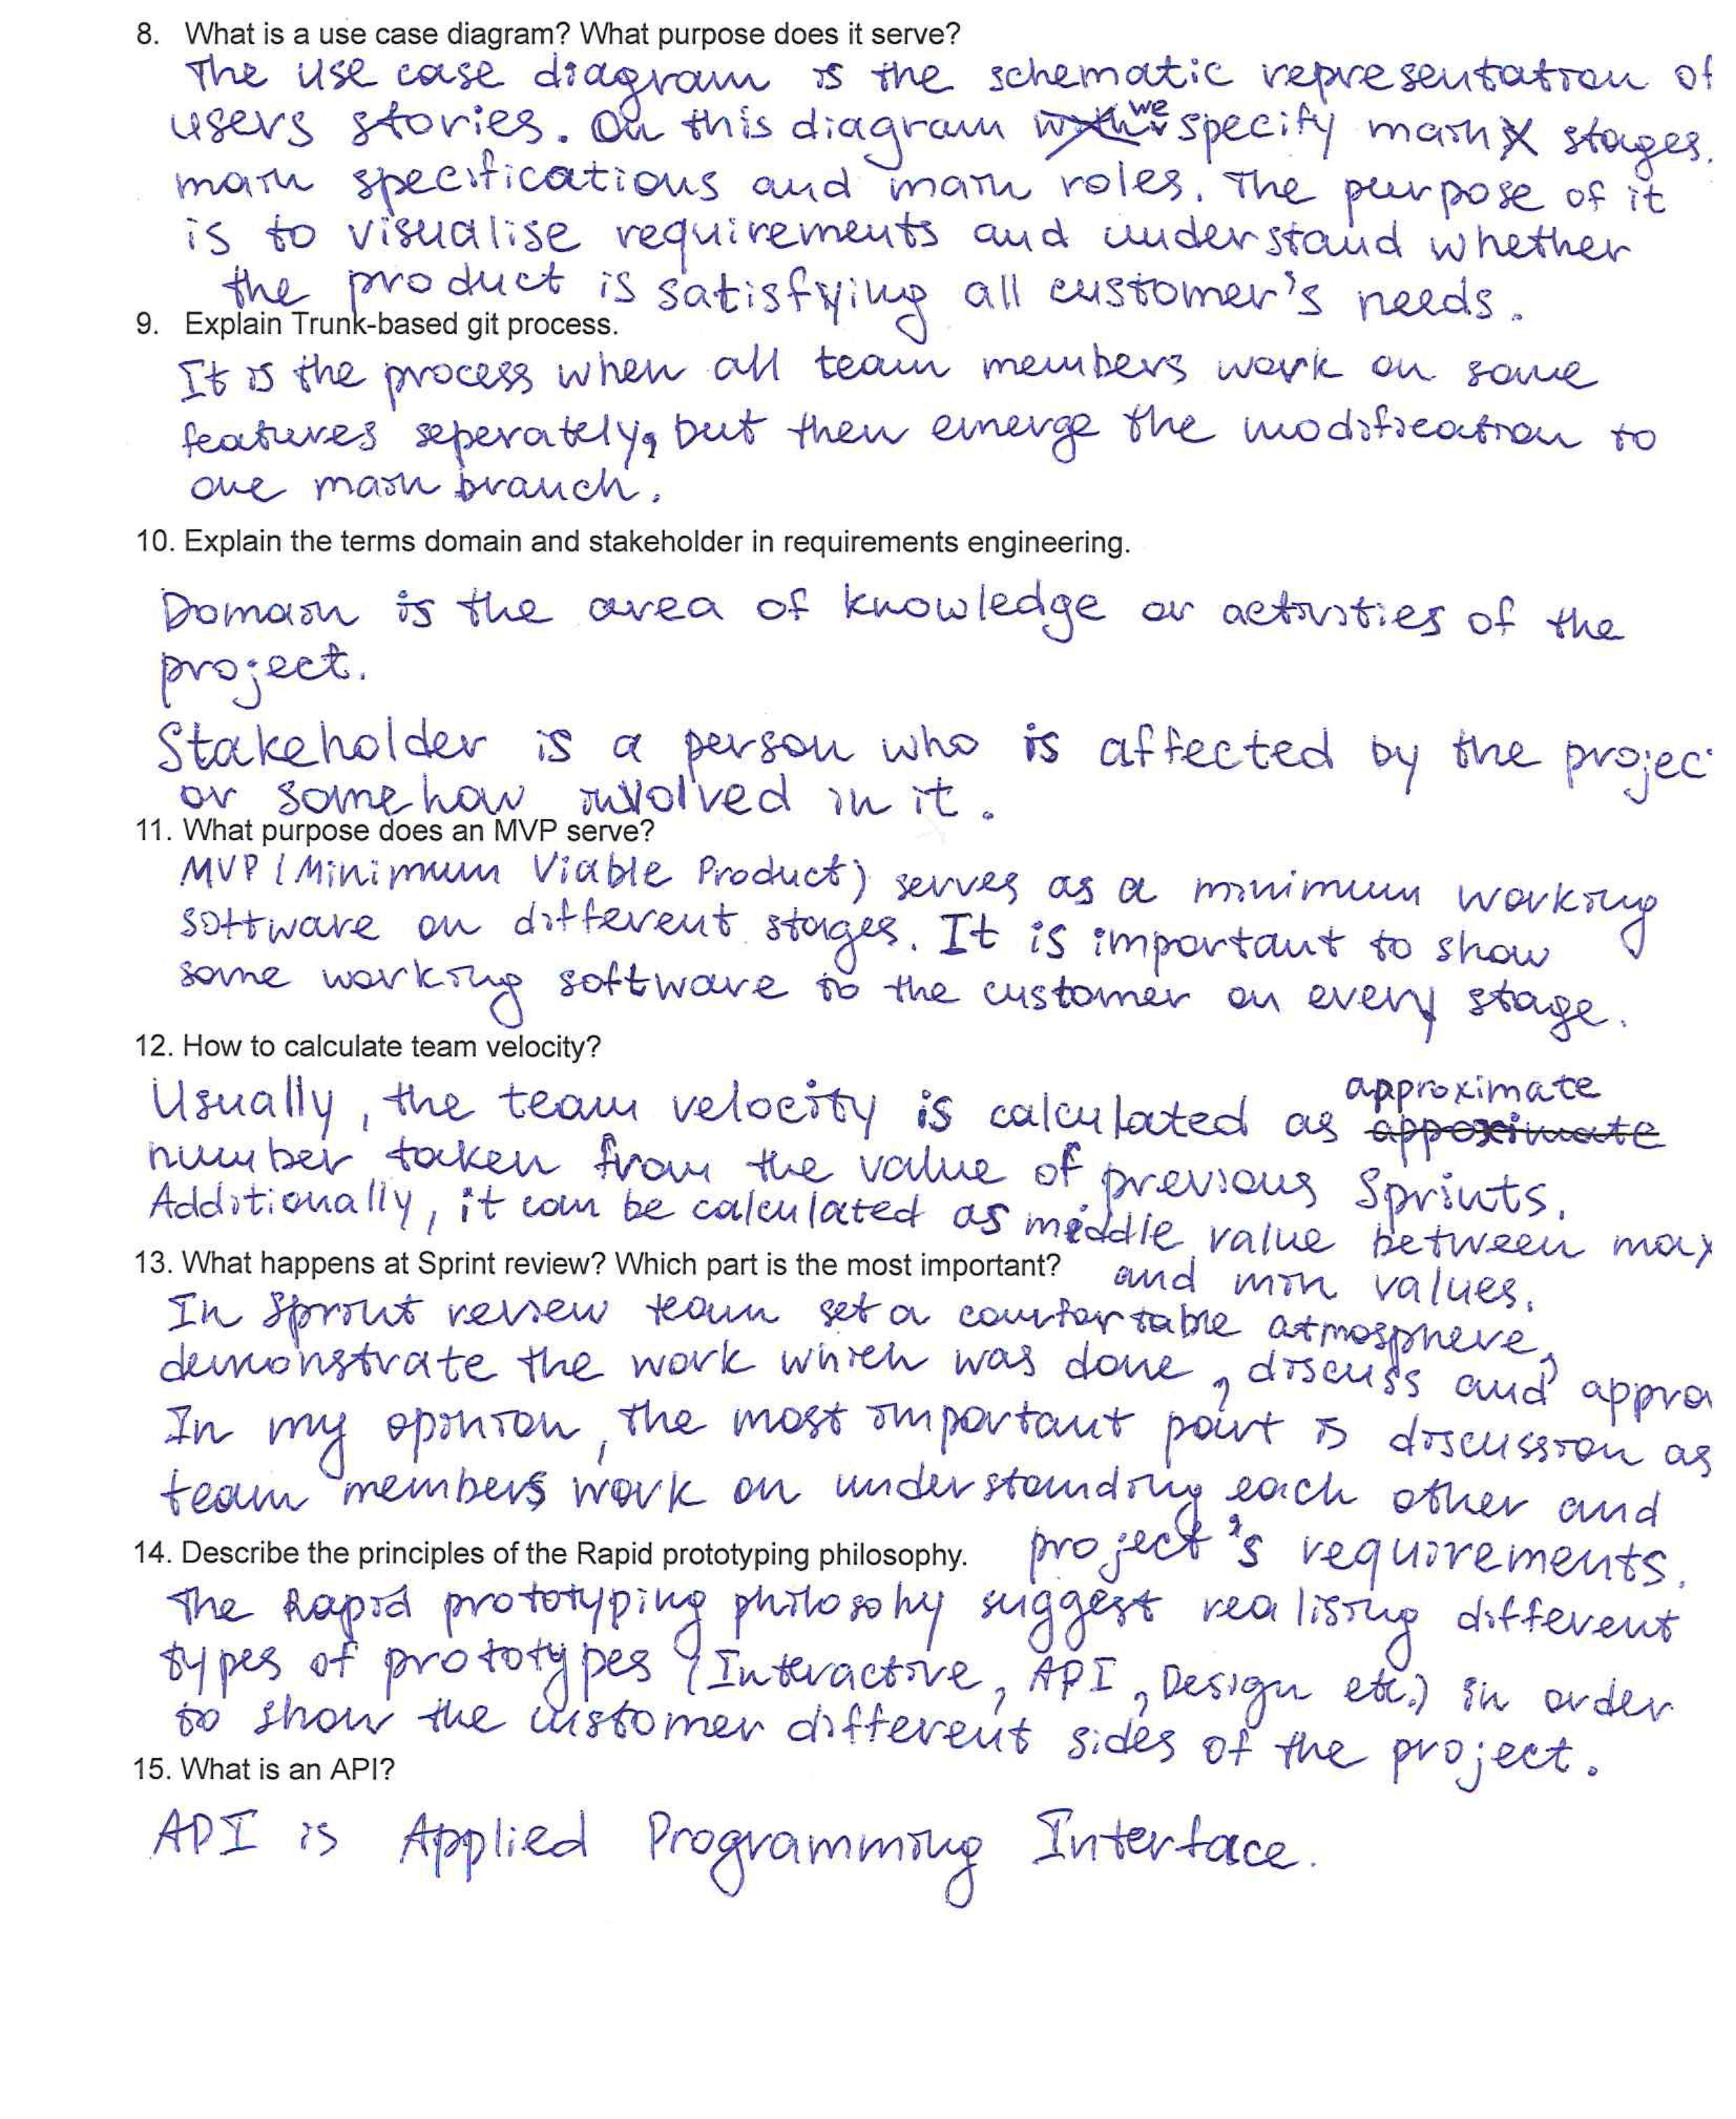 8. What is a use case diagram? What purpose does it serve?
The use case diagram is the schematic representation of
users stories. On this diagram we specify main stages,
main specifications and main roles. The purpose of it
is to visualise requirements and understand whether
the product is satisfying all customer's needs.
9. Explain Trunk-based git process.
It is the process when all team members work on some
features seperately, but then emerge the modification to
one main branch.
10. Explain the terms domain and stakeholder in requirements engineering.
Domain is the area of knowledge or activities of the
project.
Stakeholder is a person who is affected by the projec
or somehow involved in it.
11. What purpose does an MVP serve?
MVP (Minimum Viable Product) serves as a minimum working
software on different stages. It is important to show
some working software to the customer on every stage.
12. How to calculate team velocity?
Usually, the team velocity is calculated as approximate
number taken from the value of previous Sprints.
Additionally, it can be calculated as middle value between max
and min values.
13. What happens at Sprint review? Which part is the most important?
In Sprint review team set a comfortable atmosphere,
demonstrate the work which was done, discuss and appro
In my opinion, the most important point is discussion as
team members work on understanding each other and
project's requirements.
14. Describe the principles of the Rapid prototyping philosophy.
The Rapid prototyping philosohy suggest realising different
types of prototypes (Interactive, API, Design etc.) in order
to show the customer different sides of the project.
15. What is an API?
API is Applied Programming Interface.